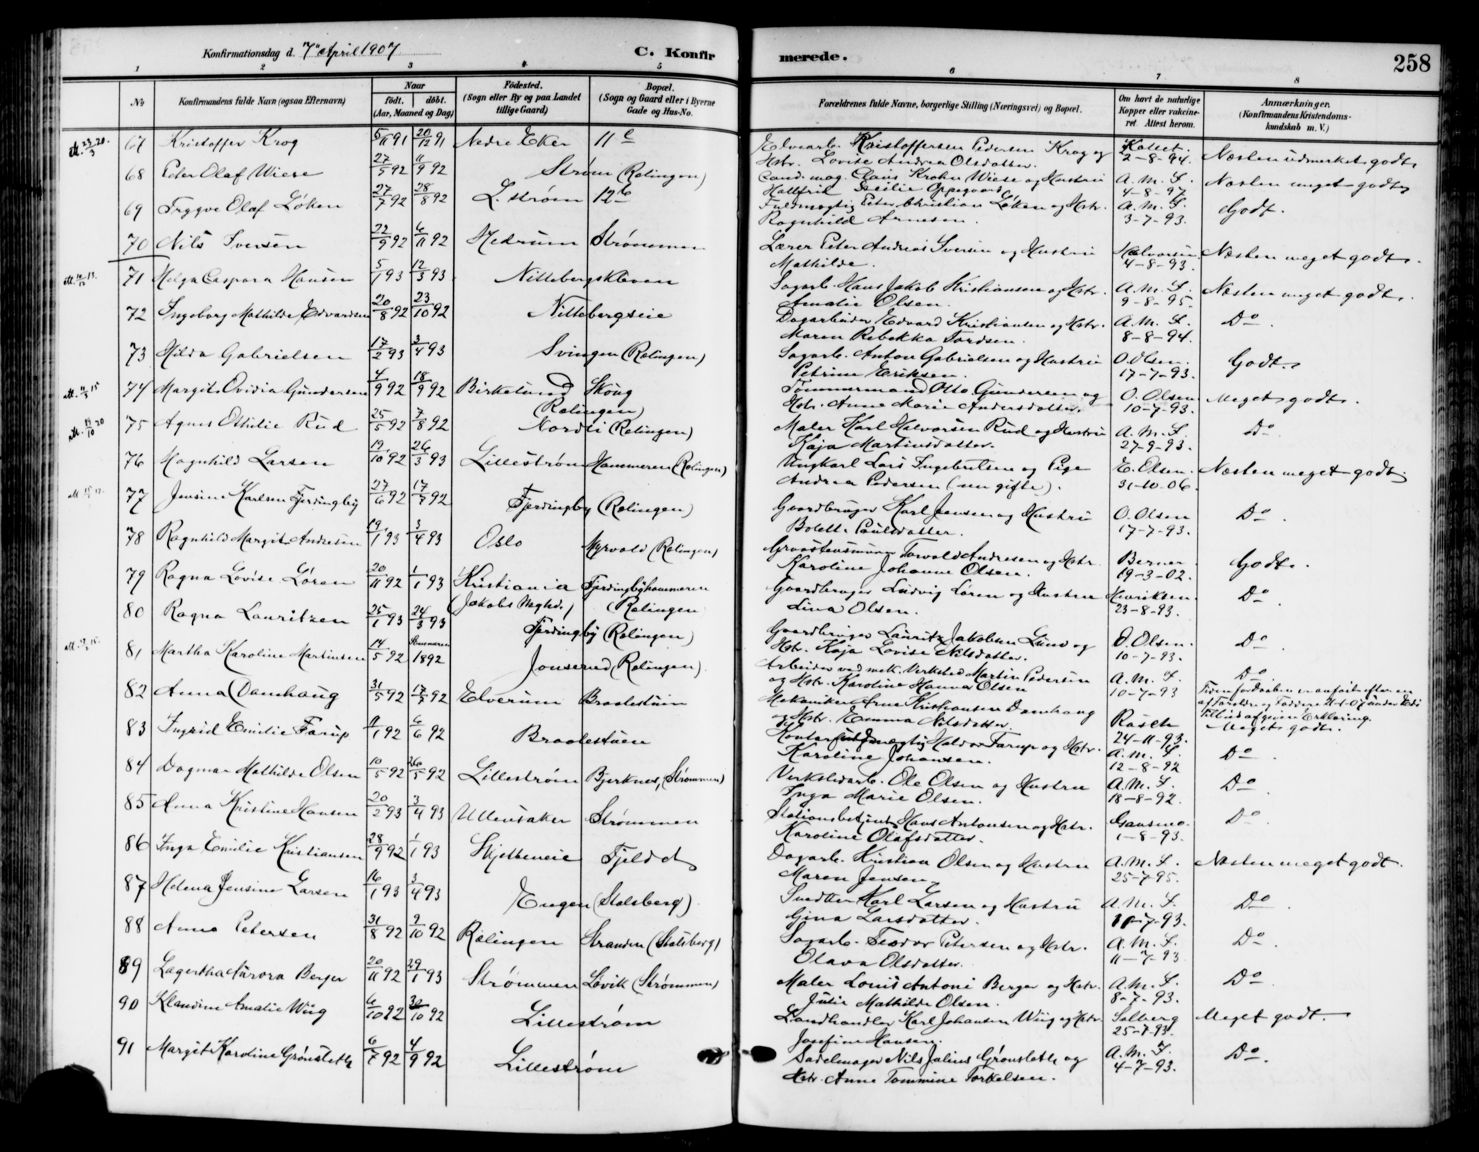 Konfirmationsdag d. 7de April 1907
C. Konfirmerede.
258
1 2 3 4 5 6 7 8
No
Konfirmandens fulde Navn (ogsaa Efternavn)
Naar
født. døbt.
(Aar, Maaned og Dag)
Fødested.
(Sogn eller By og paa Landet tillige Gaard)
Bopæl.
(Sogn og Gaard eller i Byerne Gade og Hus-No.
Forældrenes fulde Navne, borgerlige Stilling (Næringsvei) og Bopæl.
Om havt de naturlige Kopper eller vaccineret. Attest herom.
Anmærkninger.
(Konfirmandens Kristendomskundskab m. V.)
67 Kristoffer Krog 5/11 91 20/12 91 Nedre Eker 11 c
Elvearb. Kristoffersen Pedersen Krog og Hstr. Lovise Andrea Olsdatter. 2-8-94. Næsten udmerket godt
68 Peter Olaf Wiese 27/5 92 11/9 92 Strøm (Rælingen)
Cand. mag. Claus Krohn Wiese og Hustru Hallfrid Cecilie Oppegaard A. M. L. 4-8-97 Næsten meget godt
69 Trygve Olaf Løken 27/7 92 28/8 92 L.strøm 12 b
Fuldmægtig Peter Christian Løken og Hstr. Ragnhild Arnesen. A. M. L. 3-7-93. Godt.
70 Nils Iversen 22/9 92 6/11 92 Hedrum Strømmen
Lærer Peter Andreas Iversen og Hustru Mathilde. Halvorsen 4-8-93. Næsten meget godt.
71 Helga Caspara Hansen 5/1 93 12/3 93 Nittebergskleven
Sagarb. Hans Jakob Kristiansen og Hstr. Amalie Olsen. A. M. L. 9-8-95. Næsten meget godt.
72 Ingeborg Mathilde Edvardsen 20/8 92 23/10 92 Nittebergseie
Dagarbeider Edvard Kristiansen og Hstr. Maren Rebekka Tordsen. A. M. L. 8-8-94. Do.
73 Hilda Gabrielsen 17/2 93 3/4 93 Svingen (Rælingen)
Sagarb. Anton Gabrielsen og Hustru Petrine Eriksen. O. Olsen. 17-7-93. Godt.
74 Margit Ovidia Gundersen 4/9 92 18/9 92 Birkelund Skoug (Rælingen)
Tømmermand Otto Gundersen og Hstr. Anne Marie Andersdatter. O. Olsen 10-7-93. Meget godt.
75 Agnes Othilie Rud 25/5 92 7/8 92 Nordli (Rælingen)
Maler Karl Halvorsen Rud og Hustru Kaja Martinsdatter. A. M. L. 27-9-93. Do
76 Magnhild Larsen 19/10 92 26/3 93 Lillestrøm Hammeren (Rælingen)
Ungkarl Lars Ingebretsen og Pige Andrea Pedersen (una gifte). E. Olsen. 31-10-06. Næsten meget godt
77 Jensine Karlsen Fjerdingby 27/6 92 17/7 92 Fjerdingby (Rælingen)
Gaardbruger Karl Jensen og Hustru Bolette Paulsdatter. O. Olsen 17-7-93. Do.
78 Ragnhild Margit Andresen 19/1 93 3/4 93 Oslo Myrvold (Rælingen)
Torvald Andresen og Hstr. Karoline Johanne Olsen. Berner 19-3-02. Godt.
79 Ragna Lovise Løren 20/11 92 1/1 93 Kristiania (Jakobs Meghed.) Fjerdingbyhammeren (Rælingen
Gaardbruger Ludvig Løren og Hustru Lina Olsen. Henriksen 23-8-93. Do.
80 Ragna Lauritzen 25/1 93 24/3 93 Fjerdingby (Rælingen)
Gaardbruger Lauritz Jakobsen Lund og Hstr. Kaja Lovise Nilsdatter. O. Olsen. 10-7-93. Do
81 Martha Karoline Martinsen 14/5 92 Sommeren 1892 Jonserud (Rælingen)
Arbeider ved mek. Verksted Martin Pedersen og Hstr. Karoline Hanna Olsen A. M. L. 10-7-93 Do
82 Anna Damhaug 31/5 92 17/7 92 Elverum Braatestuen
Mekaniker Arne Kristiansen Damhaug og Hstr. Emma Nilsdatter. Raseth 24-11-93. Meget godt.
83 Ingrid Emilie Farup 11/1 92 6/6 92 Braatestuen
Kontorfuldmægtig Haldor Farup og Hstr. Karoline Johansen. A. M. L. 12-8-92 Do
84 Dagmar Mathilde Olsen 10/5 92 26/5 92 Lillestrøm Bjerknes, (Strømmen)
Verkstedarb. Ole Olsen og Hustru Inga Marie Olsen. A. M. L. 18-8-92. Do.
85 Anna Kristine Hansen 20/2 93 3/4 93 Ullensaker Strømmen
Stationsbetjent Hans Antonsen og Hstr. Karoline Olafsdatter. 1-8-93. Do.
86 Inga Emilie Kristiansen 28/9 92 1/1 93 Skjetteneie Fjeldet
Dagarb. Kristian Olsen og Hustru Maren Jensen. A. M. L. 25-7-95. Næsten meget godt.
87 Helena Jensine Larsen 16/1 93 3/4 93 Engen (Stalsberg)
Karl Larsen og Hustru Gina Larsdatter. A. M. L. 10-7-93. Do.
88 Anna Petersen 31/8 92 2/10 92 Rælingen Stranden (Stalsberg)
Sagarb. Teodor Petersen og Hstr. Olava Olsdatter. A. M. L. 11-7-93. Do.
89 Lagertha Aurora Berger 20/11 92 29/1 93 Strømmen Løvik (Strømmen)
Maler Louis Antoni Berger og Hstr. Julie Mathilde Olsen. A. M. L. 8-7-93. Do.
90 Klaudine Amalie Wiig 6/10 92 30/10 92 Lillestrøm
Landhandler Karl Johansen Wiig og Hstr. Josefine Hansen. Solberg 25-7-93. Meget godt.
91 Margit Karoline Grønsleth 6/7 92 4/9 92 Lillestrøm
Sadelmager Nils Julius Grønsleth og Hstr. Anne Tommine Torkelsen. A. M. L. 4-7-93. Do.